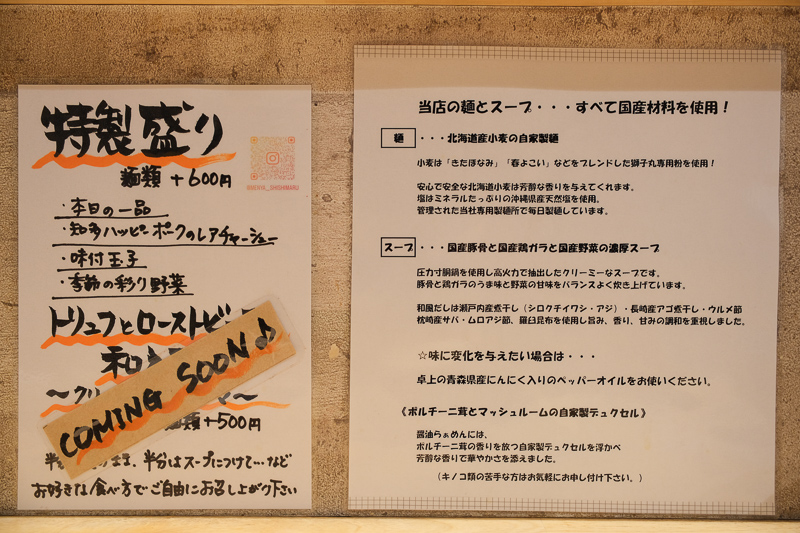 特製盛り
麺類 +600円
@SEKIYA_SHISHIMARU
・本日の一品
・知多ハッピーポークのレアチャーシュー
・味付玉子
・季節の彩り野菜
トリュフとローストビ
和
COMING SOON♪
麺類+500円
半分はスープにつけて…など
お好きな食べ方でご自由にお召し上がり下さい
当店の麺とスープ・・・すべて国産材料を使用！
麺 ・・・北海道産小麦の自家製麺
小麦は「きたほなみ」「春よこい」などをブレンドした獅子丸専用粉を使用！
安心で安全な北海道小麦は芳醇な香りを与えてくれます。
塩はミネラルたっぷりの沖縄県産天然塩を使用。
管理された当社専用製麺所で毎日製麺しています。
スープ ・・・国産豚骨と国産鶏ガラと国産野菜の濃厚スープ
圧力寸胴鍋を使用し高火力で抽出したクリーミーなスープです。
豚骨と鶏ガラのうま味と野菜の甘味をバランスよく炊き上げています。
和風だしは瀬戸内産煮干し（シロクチイワシ・アジ）・長崎産アゴ煮干し・ウルメ節
枕崎産サバ・ムロアジ節、羅臼昆布を使用し旨み、香り、甘みの調和を重視しました。
☆味に変化を与えたい場合は・・・
卓上の青森県産にんにく入りのペッパーオイルをお使いください。
《ポルチーニ茸とマッシュルームの自家製デュクセル》
醤油らぁめんには、
ポルチーニ茸の香りを放つ自家製デュクセルを浮かべ
芳醇な香りで華やかさを添えました。
（キノコ類の苦手な方はお気軽にお申し付け下さい。）